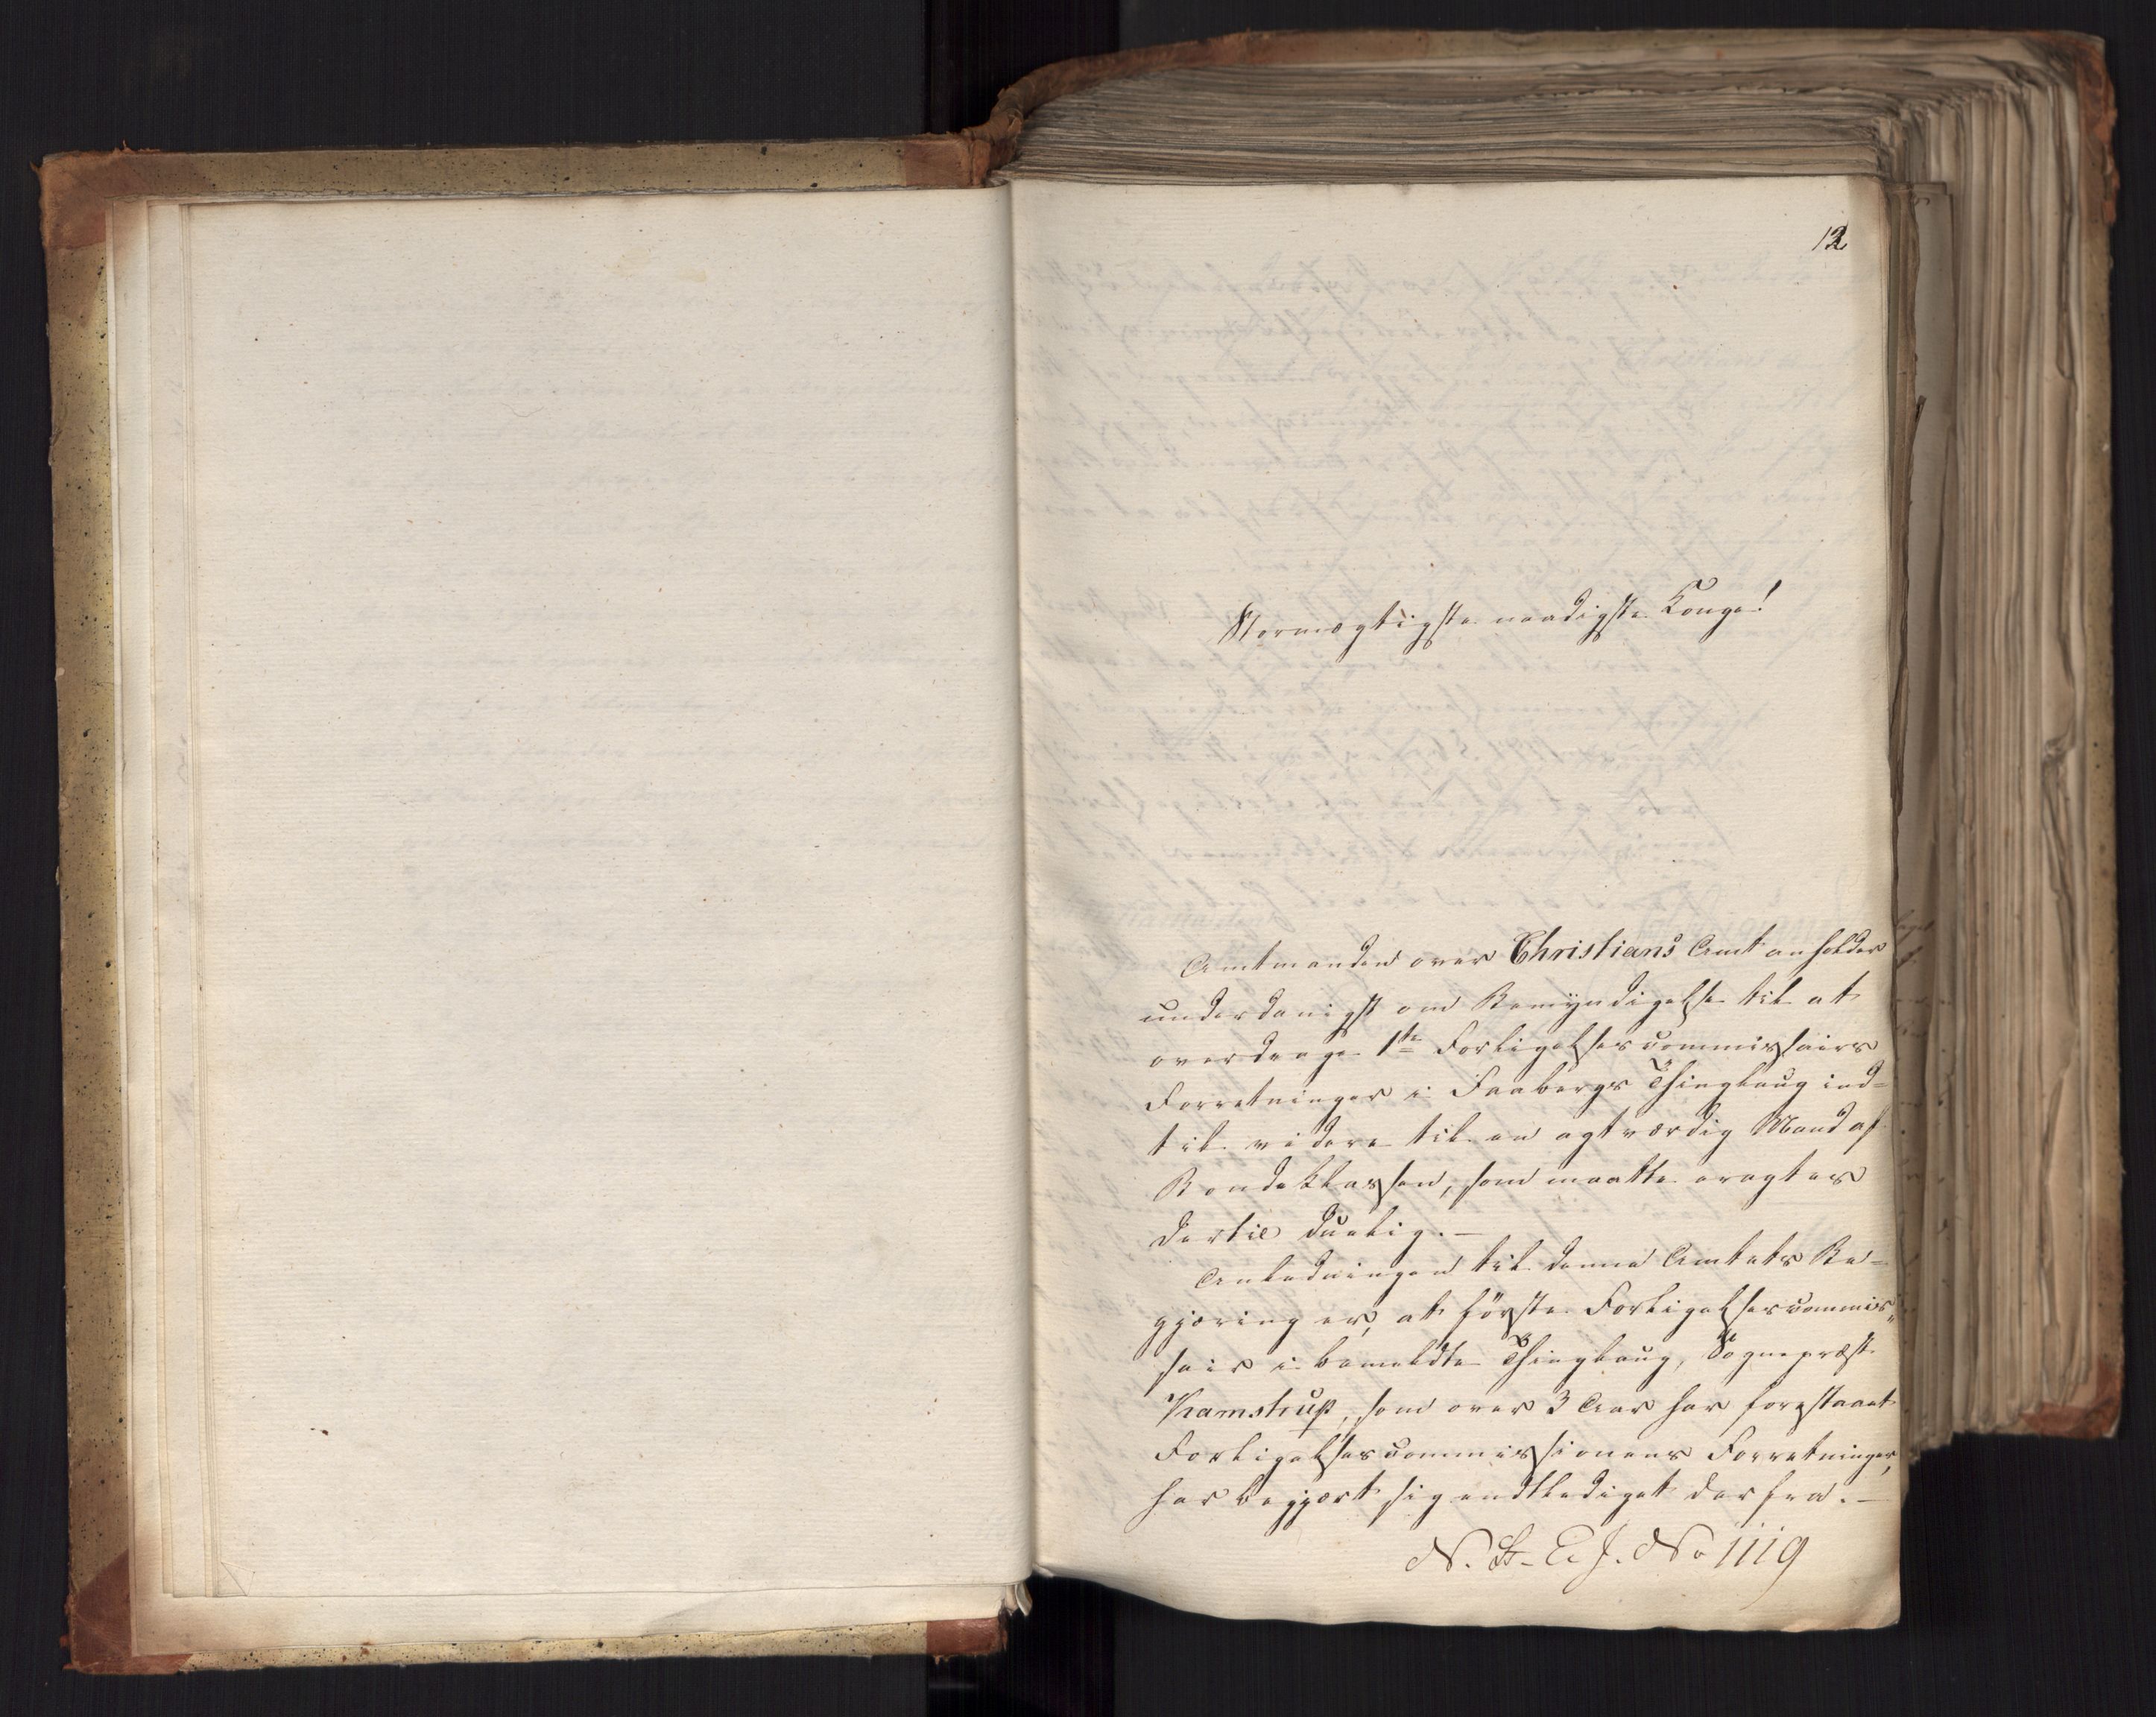 12
Stormægtigste naadigste Konge!
Amtmanden over Christians Amt anholder
underdanigst om Bemÿndigelse til at
overdrage 1ste Forligelsescommissairs
Forretninger i Faabergs Thinglaug ind=
til videre til en agtværdig Mand af
Bondeklassen, som maatte eragtes
dertil duelig. —
Anledningen til denne Amtets Be=
gjæring er, at förste Forligelsescommis„
sair i bemeldte Thinglaug, Sognepræst
Kamstrup, som over 3 Aar har forestaaet
Forligelsescommissionens Forretninger,
har begjært sig entlediget derfra. —
N. St. E. J. No 1119